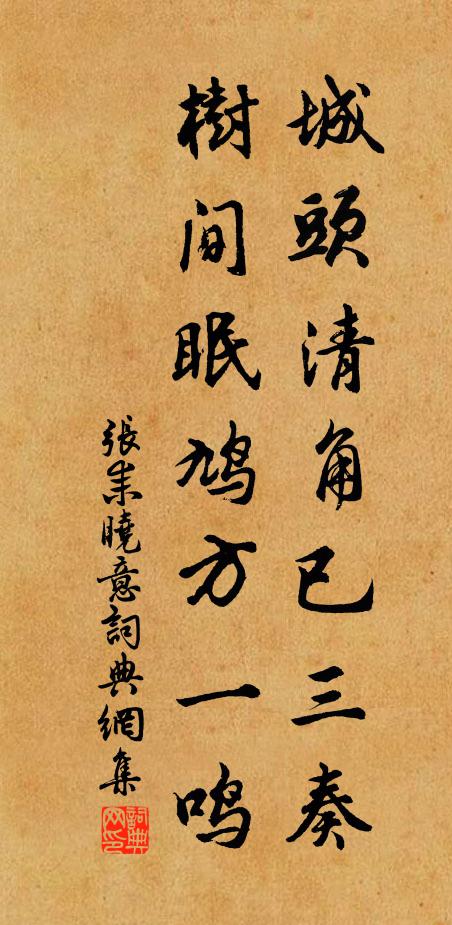 城頭清角已三奏
樹間眠鳩方一鳴
張耒曉意詞典網集
詞典网印